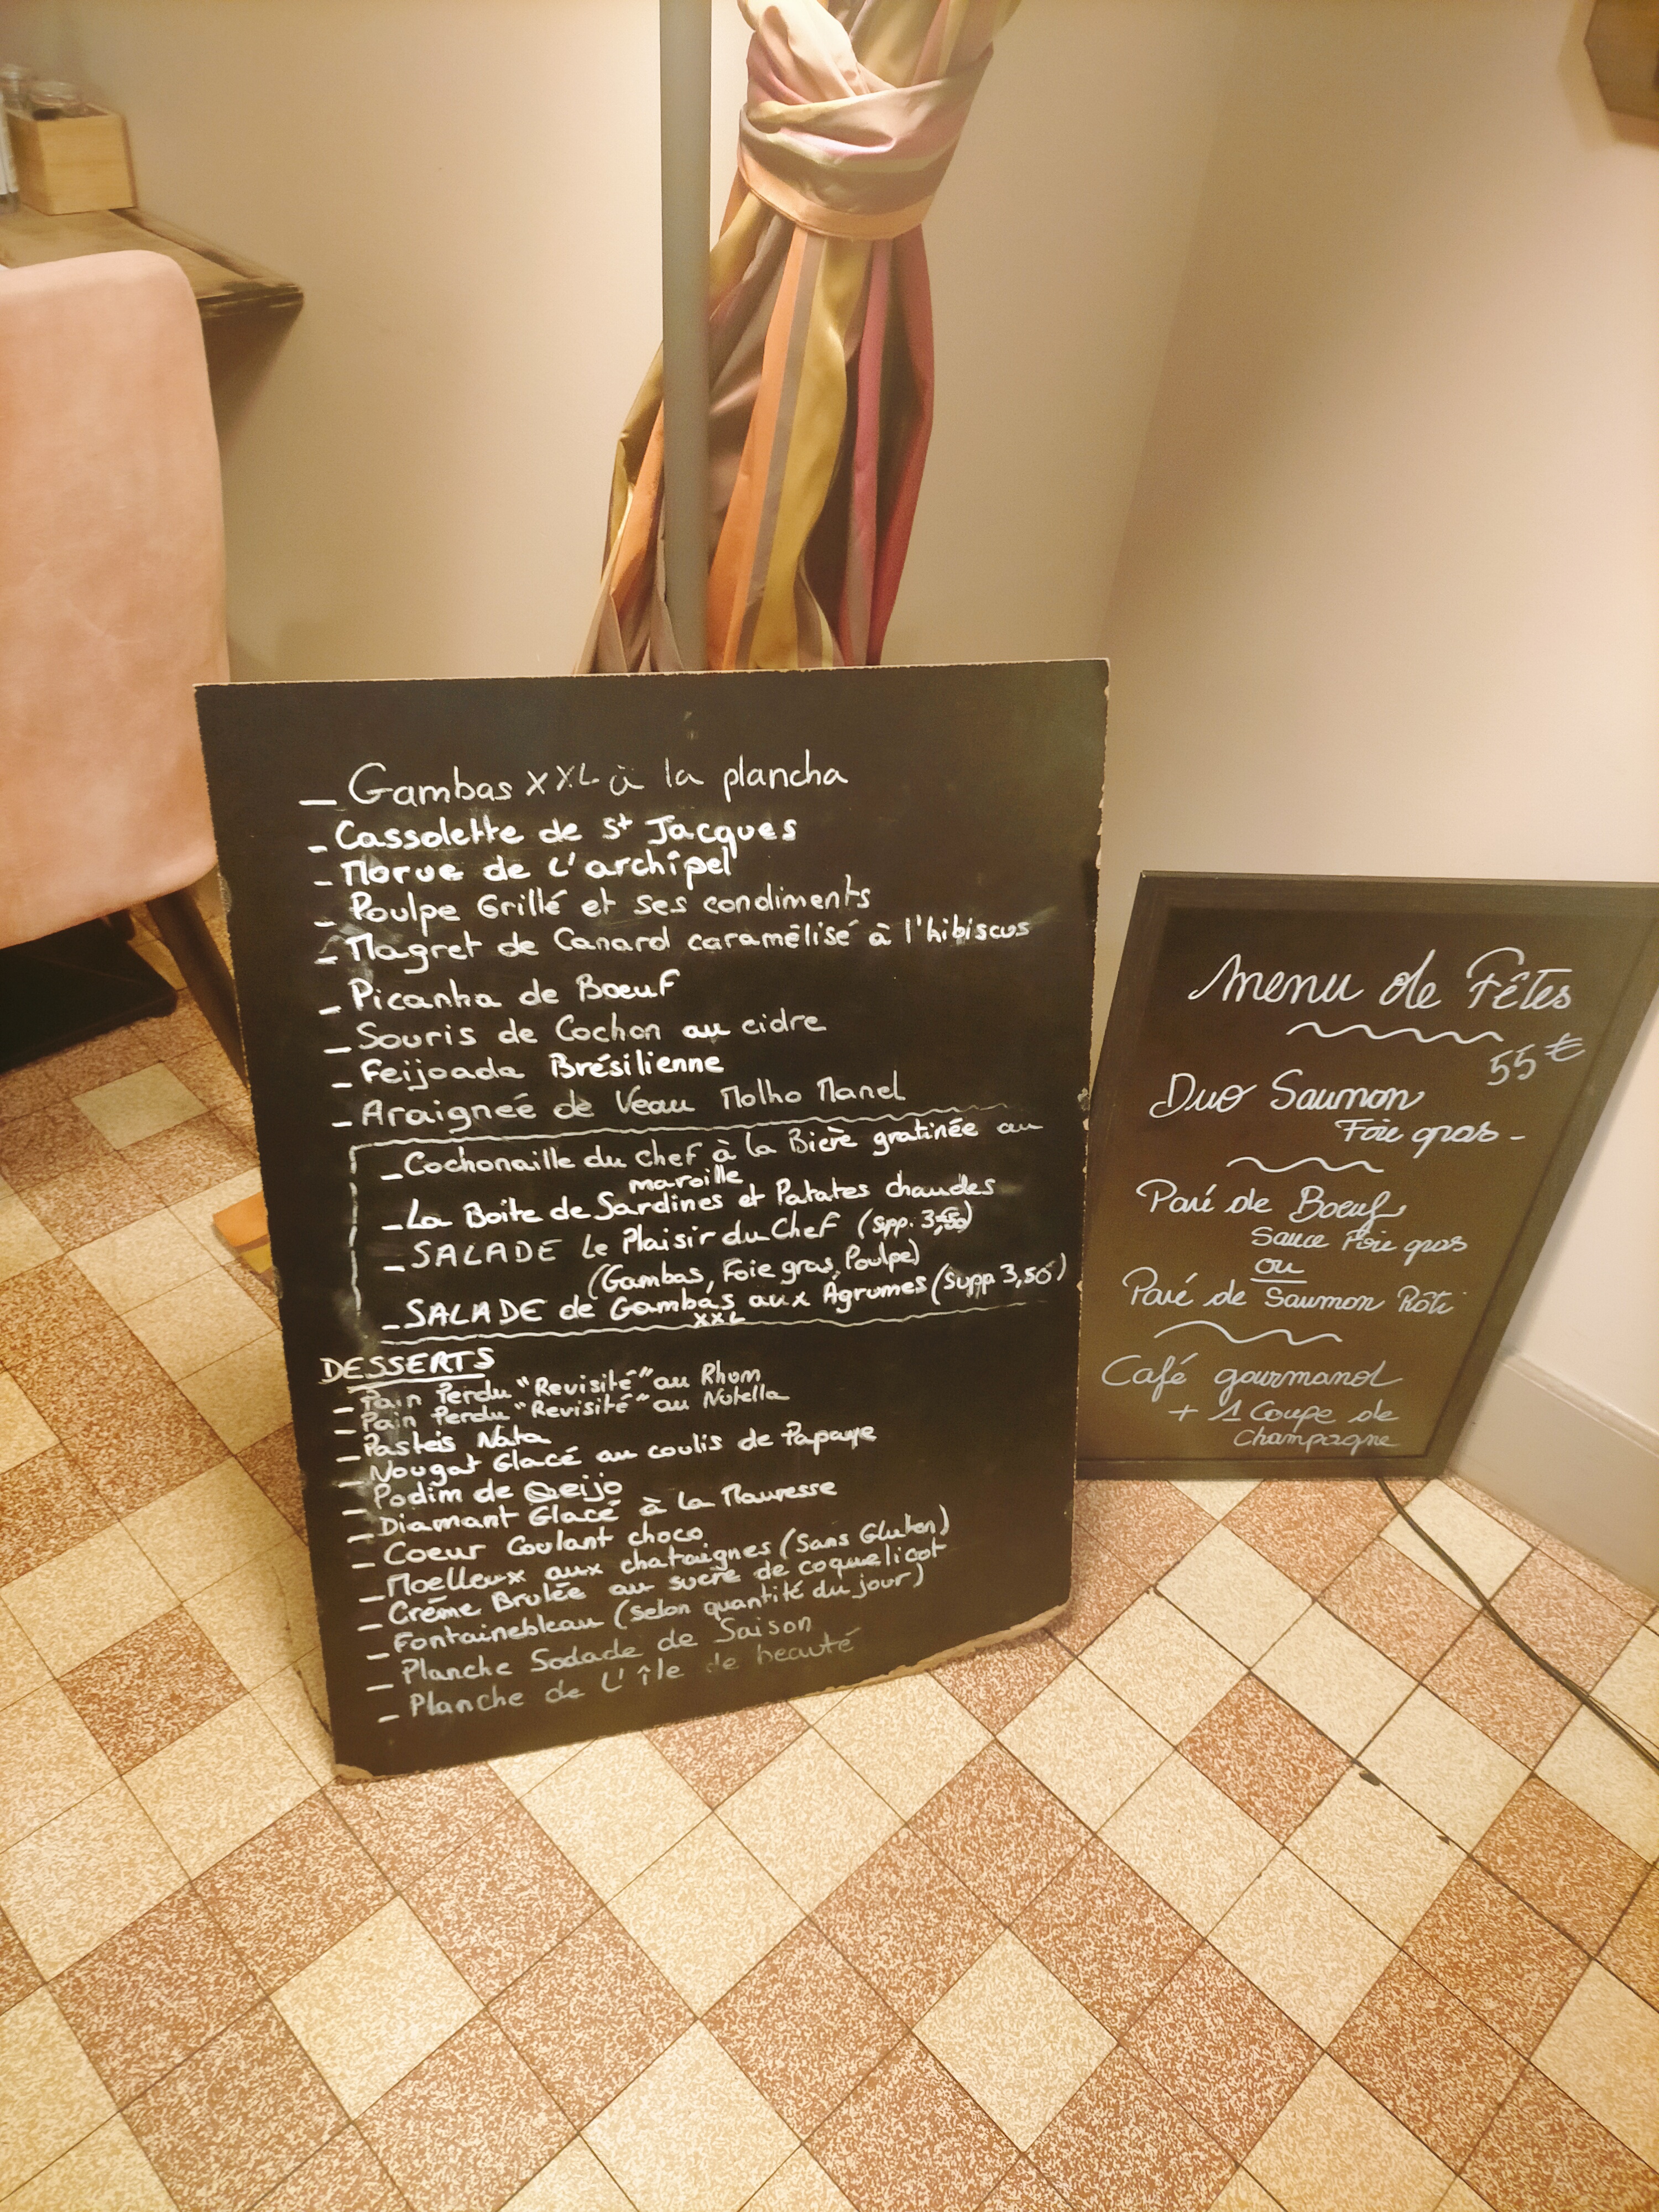 — Gambas XXL à la plancha
- Cassolette de St Jacques
- Morue de L'archipel
- Poulpe Grillé et ses condiments
- Magret de Canard caramélisé à l'hibiscus
- Picanha de Boeuf
- Souris de Cochon au cidre
- Feijoada Brésilienne
- Araignée de Veau Molho Manel
- Cochonaille du chef à la Bière gratinée au
maroille
- La Boite de Sardines et Patates chaudes
- SALADE Le Plaisir du Chef (spp. 3,50)
(Gambas, Foie gras, Poulpe)
- SALADE de Gambas aux Agrumes (supp 3,50)
XXL
DESSERTS
- Pain Perdu "Revisité" au Rhum
- Pain Perdu "Revisité" au Nutella
- Pasteis Nata
- Nougat Glacé au coulis de Papaye
- Podim de Qeijo
- Diamant Glacé à la Mauresse
- Coeur Coulant choco
- Moelleux aux chataignes (Sans Gluten)
- Crême Brulée au sucre de coquelicot
- Fontainebleau (selon quantité du jour)
- Planche Sodade de Saison
- Planche de L'île de beauté
Menu de Fêtes
55 €
Duo Saumon
Foie gras -
Pavé de Boeuf
Sauce Foie gras
ou
Pavé de Saumon Rôti
Café gourmand
+ 1 Coupe de
Champagne